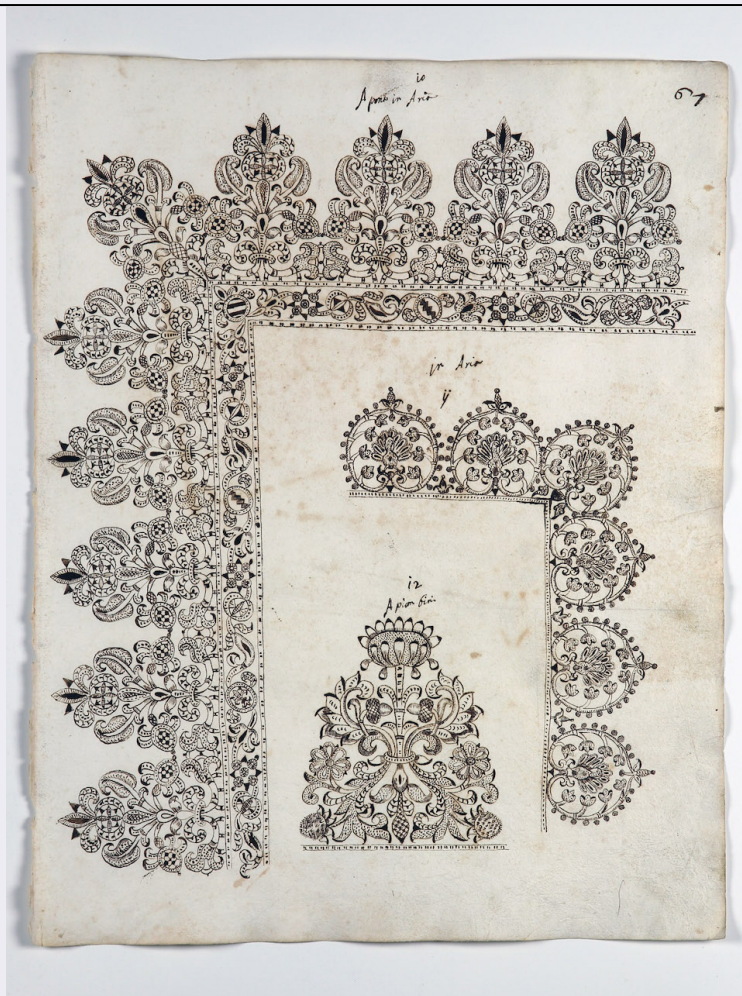 10
A ponto in Aria
67
in Aria
ij
12
A pion bin